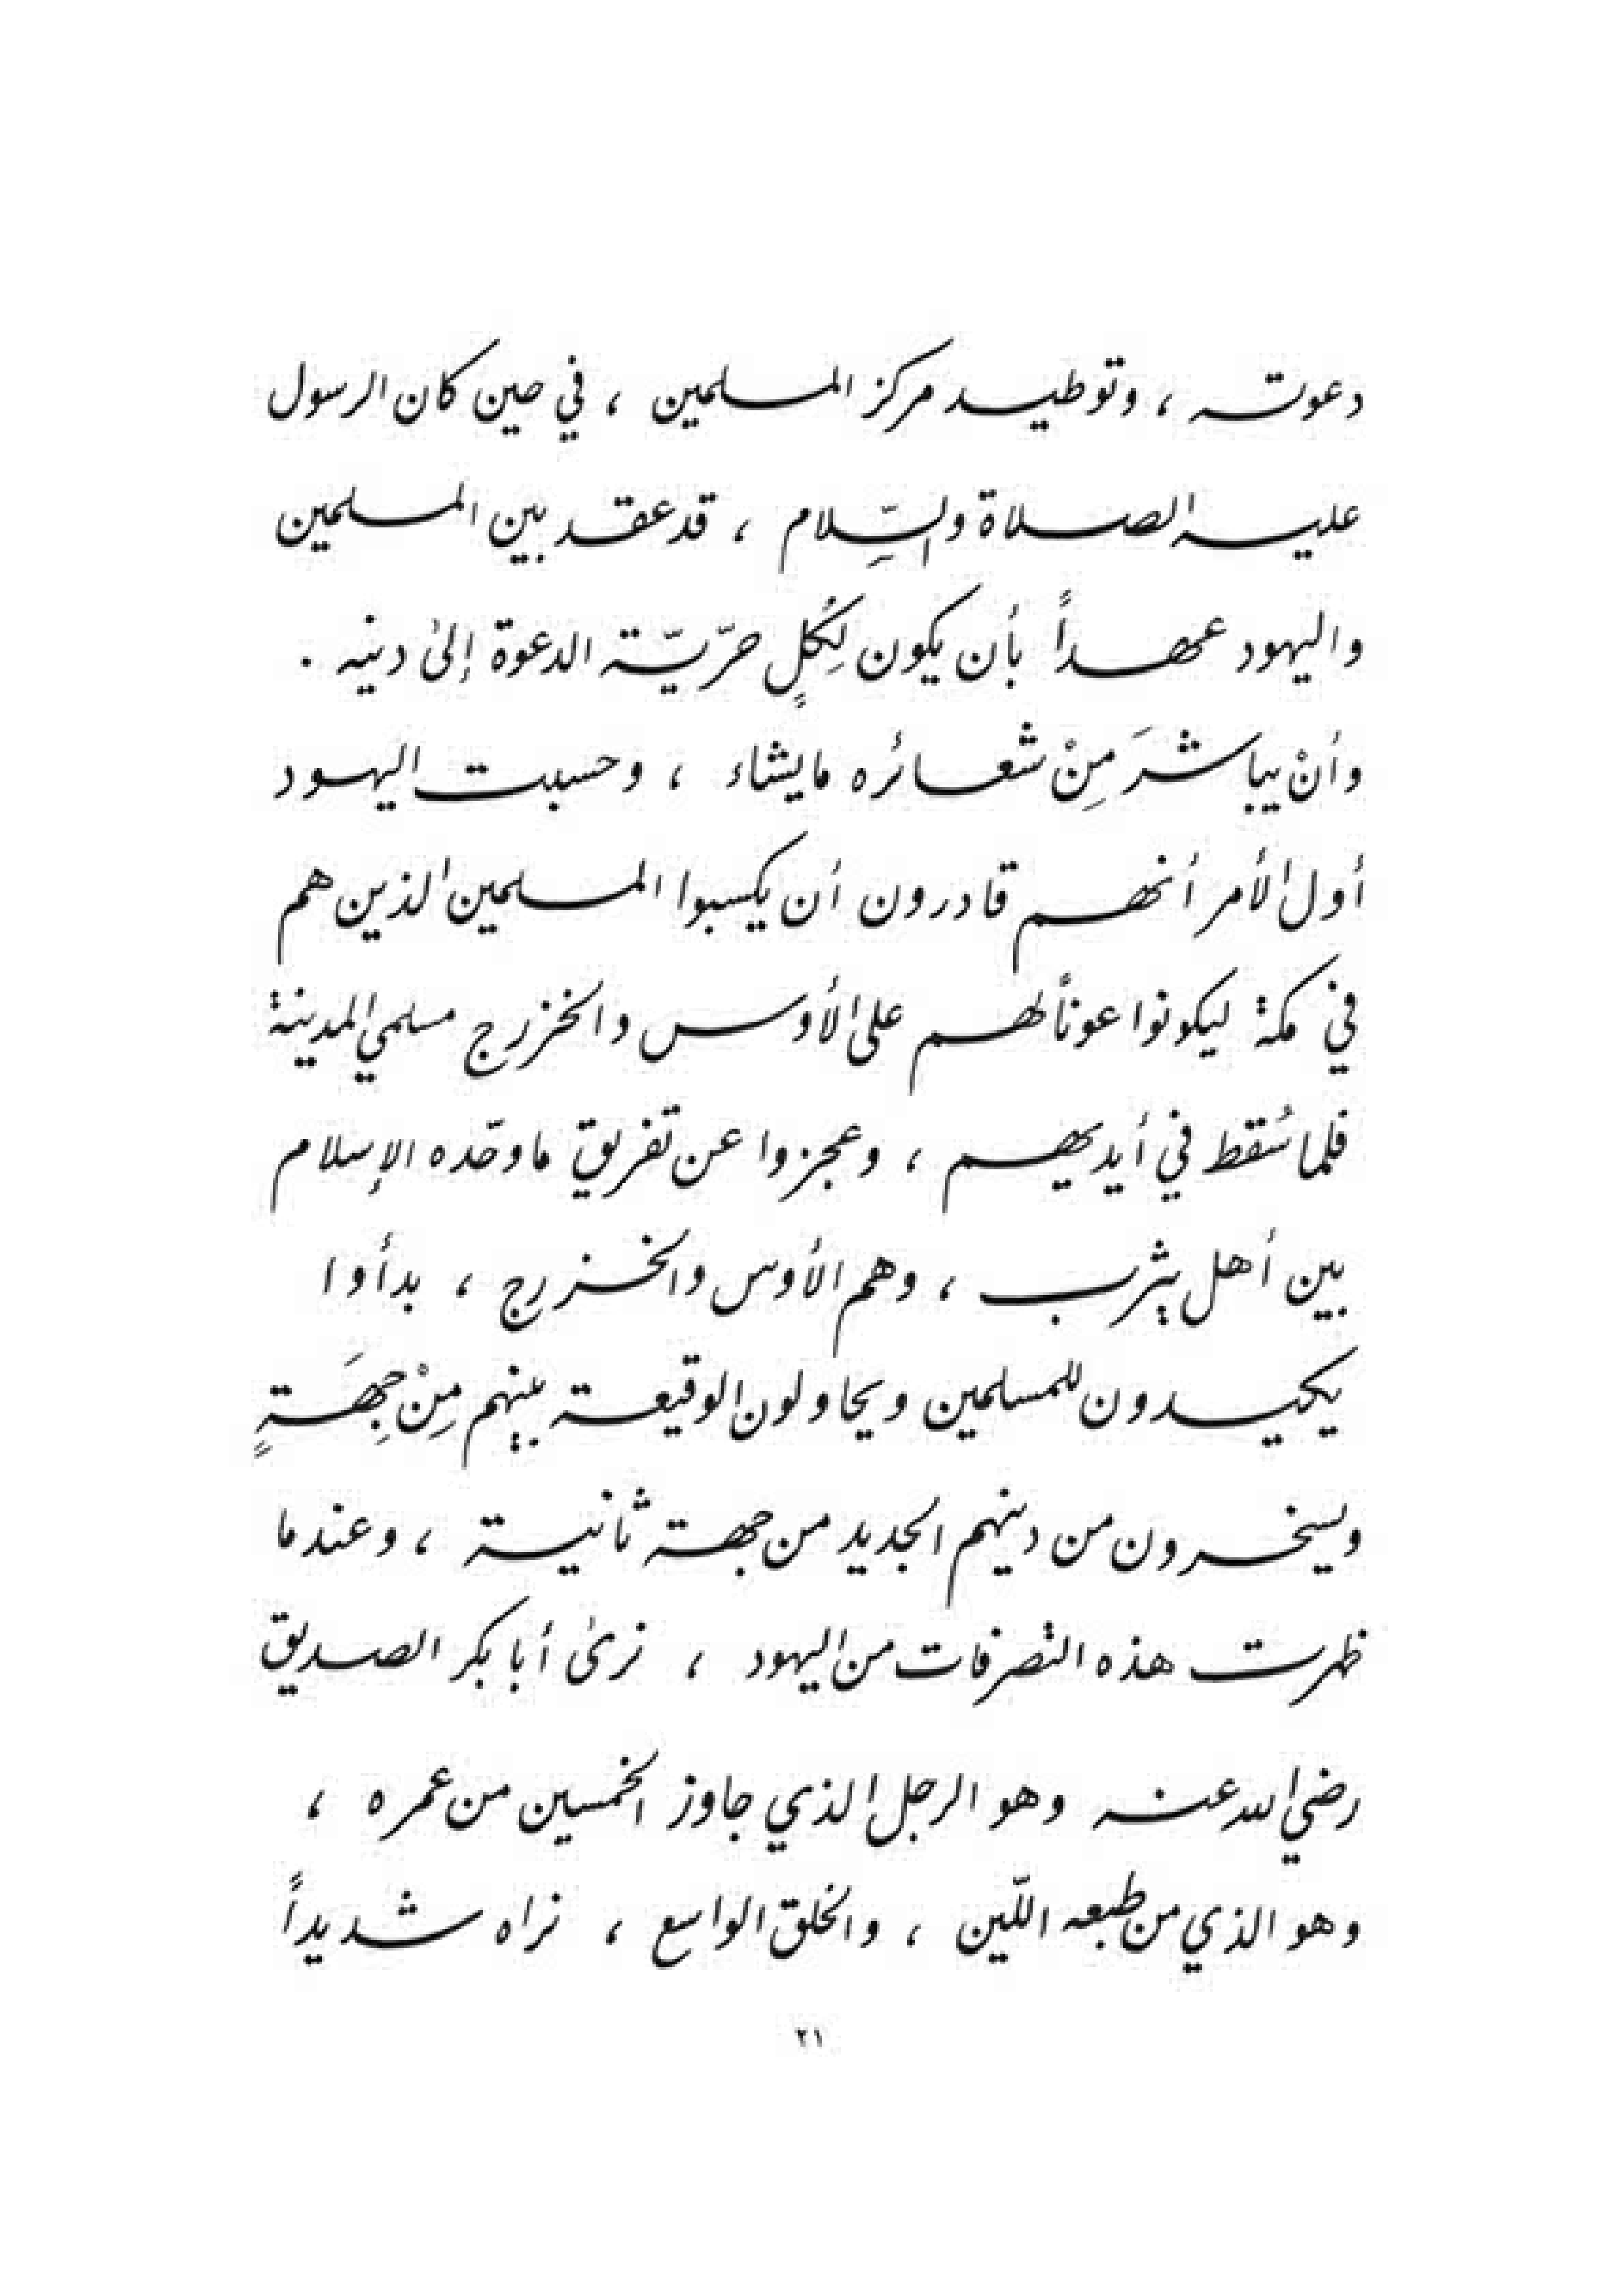 دعوته ، وتوطيد مركز المسلمين ، في حين كان الرسول
عليه الصلاة والسّلام ، قد عقد بين المسلمين
واليهود عهداً بأن يكون لِكُلٍ حرّيّة الدعوة إلىٰ دينه .
وأنْ يباشرَ مِنْ شعائره مايشاء ، وحسبت اليهود
أول الأمر أنهم قادرون أن يكسبوا المسلمين الذين هم
في مكة ليكونوا عوناً لهم على الأوس والخزرج مسلمي المدينة
فلما سُقط في أيديهم ، وعجزوا عن تفريق ماوحّده الإسلام
بين أهل يثرب ، وهم الأوس والخزرج ، بدأوا
يكيدون للمسلمين ويحاولون الوقيعة بينهم مِنْ جِهَةٍ
ويسخرون من دينهم الجديد من جهة ثانية ، وعندما
ظهرت هذه التصرفات من اليهود ، نرىٰ أبا بكر الصديق
رضي الله عنه وهو الرجل الذي جاوز الخمسين من عمره ،
وهو الذي من طبعه اللّين ، والخلق الواسع ، نراه شديداً
٢١